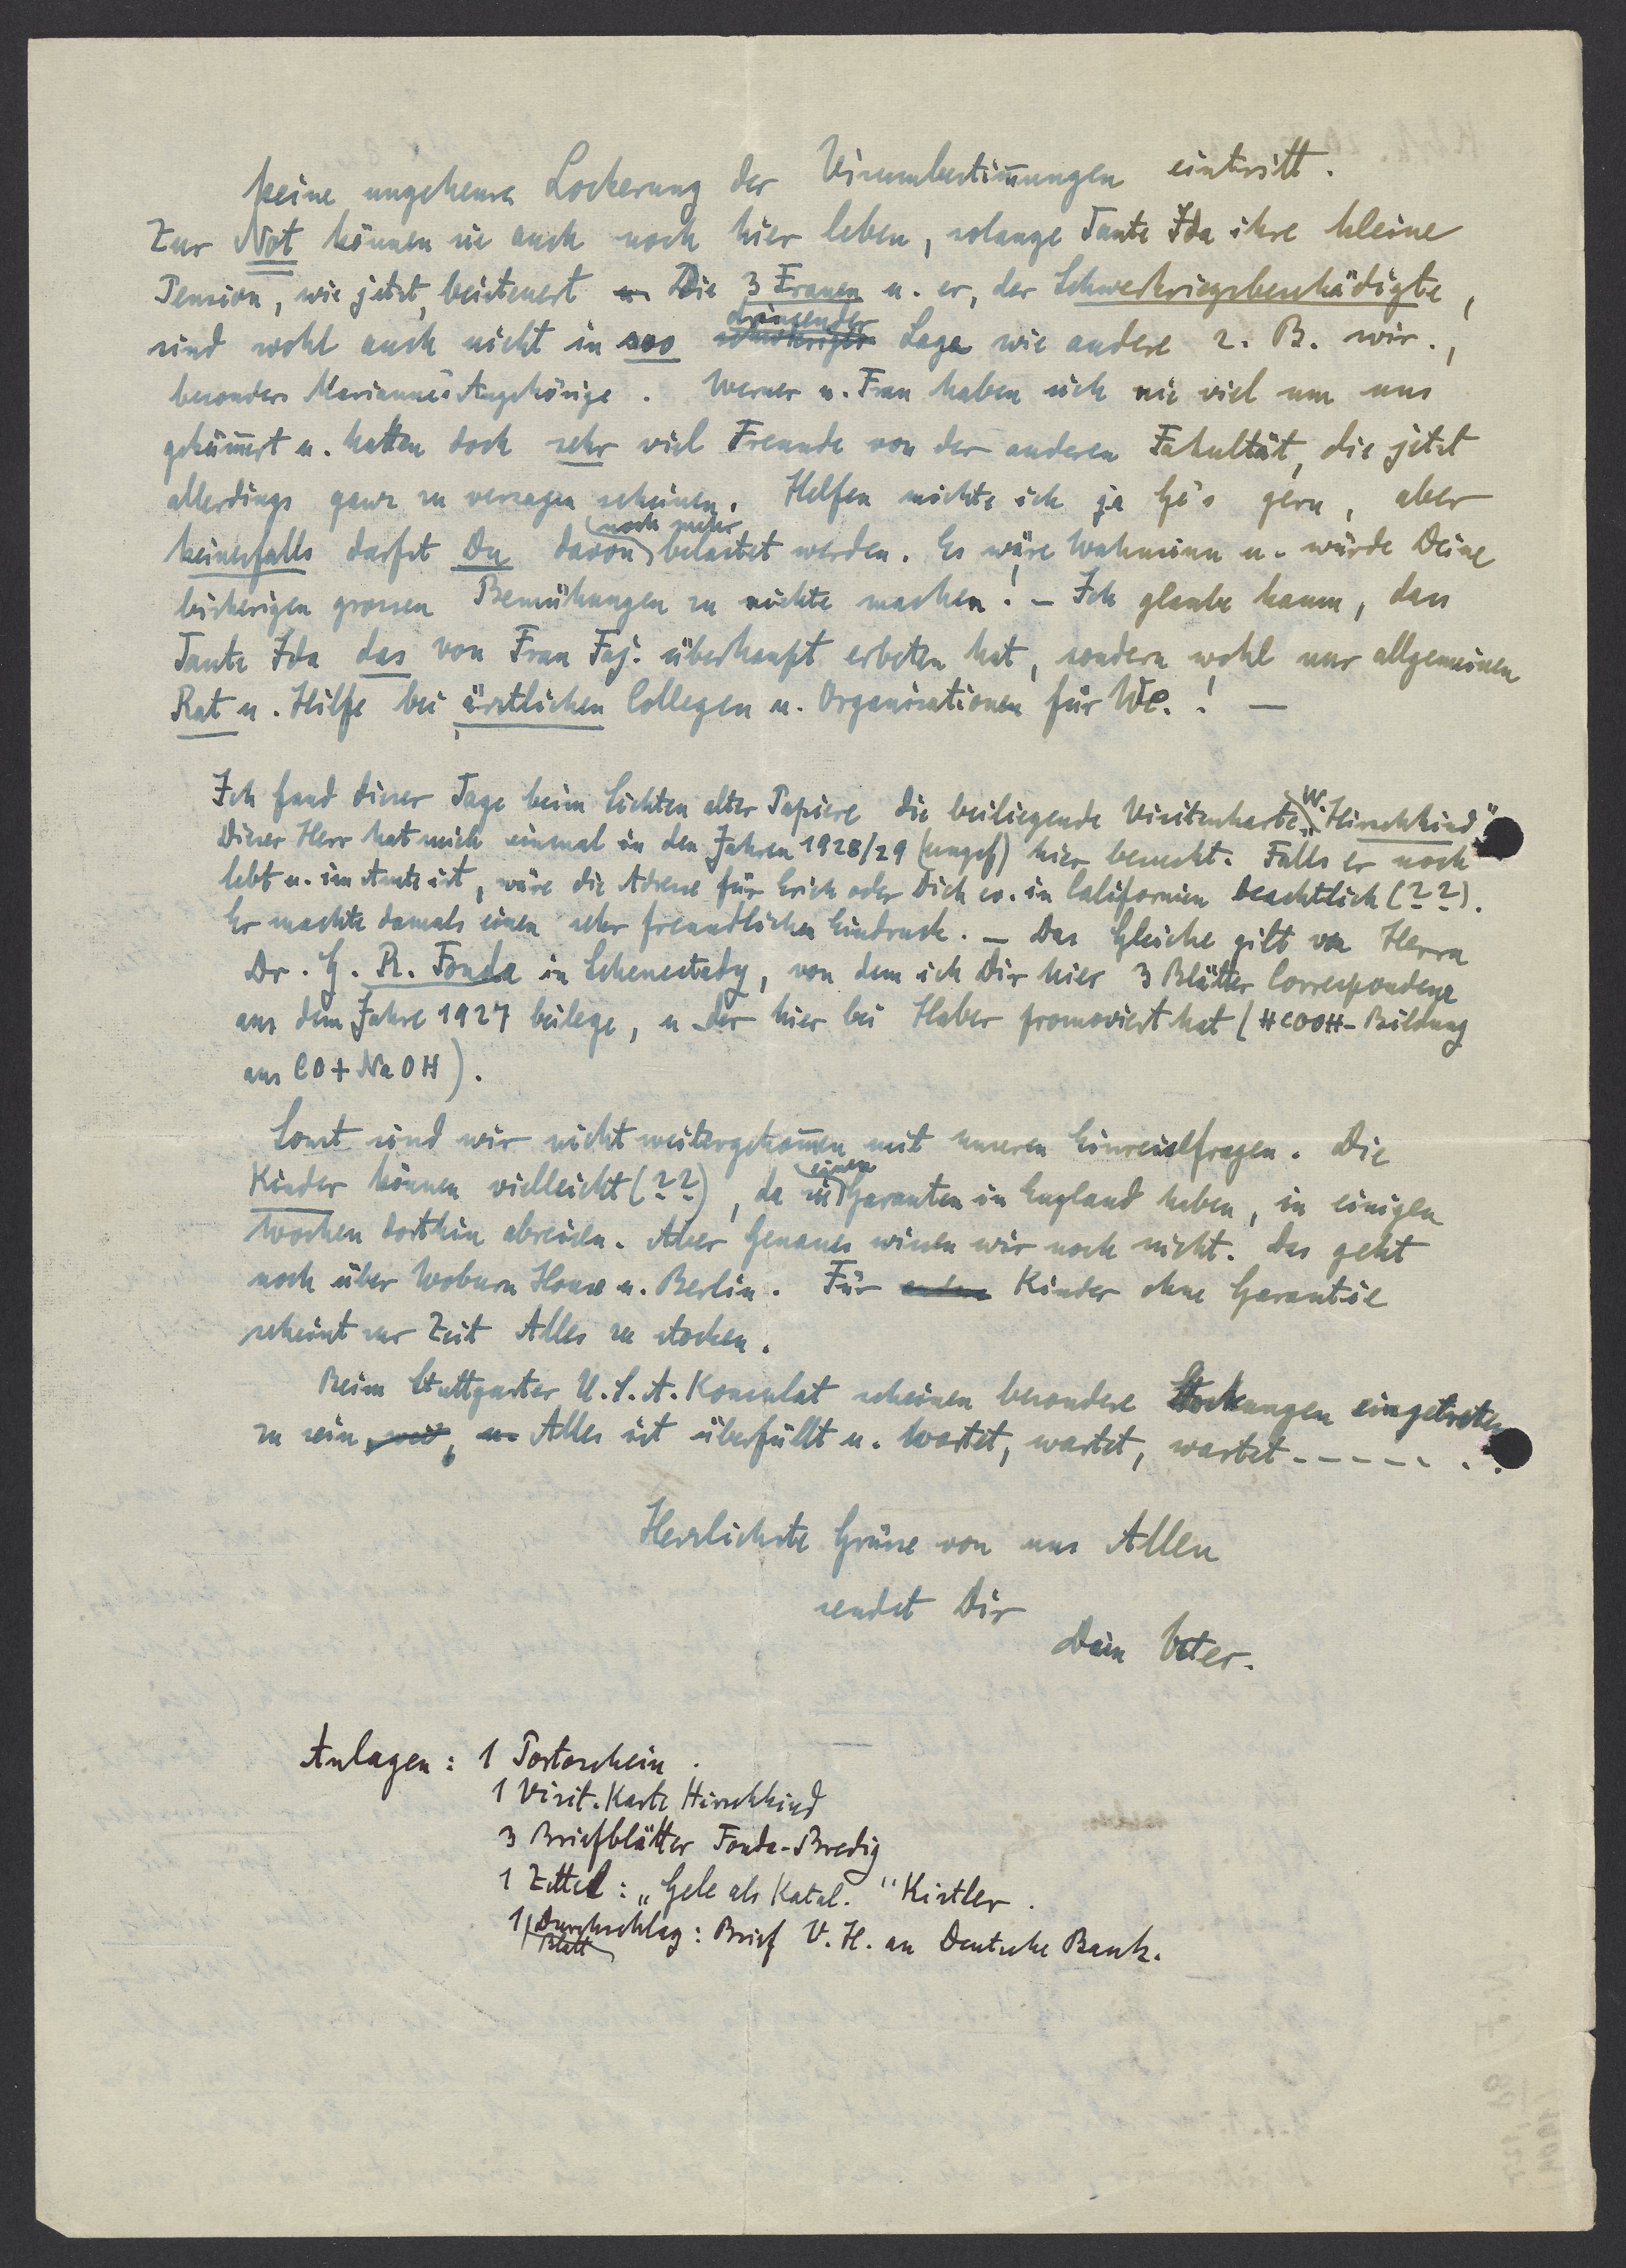 keine ungeheure Lockerung der Visumbestim̅ungen eintritt.
Zur Not können sie auch noch hier leben, solange Tante Ida ihre kleine
Pension, wie jetzt, beisteuert u. Die 3 Frauen u. er, der Schwerkriegsbeschädigte,
sind wohl auch nicht in soo schwieriger dringender Lage wie andere z. B. wir.,
besonders Marianne's Angehörige. Werner u. Frau haben sich nie viel um uns
geküm̅ert u. hatten doch sehr viel Freunde von der anderen Fakultät, die jetzt
allerdings ganz zu versagen scheinen. Helfen möchte ich ja Ge's gern, aber
keinesfalls darfst Du davon noch mehr belastet werden. Es wäre Wahnsinn u. würde Deine
bisherigen grossen Bemühungen zu nichte machen! – Ich glaube kaum, dass
Tante Ida das von Frau Faj. überhaupt erbeten hat, sondern wohl nur allgemeinen
Rat u. Hilfe bei ärztlichen Collegen u. Organisationen für We.! —
Ich fand dieser Tage beim Sichten alter Papiere die beiliegende Visitenkarte „W. Hirschkind"
Dieser Herr hat mich einmal in den Jahren 1928/29 (ungef) hier besucht. Falls er noch
lebt u. im Amte ist, wäre die Adresse für Erich oder Dich ev. in Californien beachtlich (??).
Er machte damals einen sehr freundlichen Eindruck. – Das Gleiche gilt von Herrn
Dr. G. R. Fonda in Schenectady, von dem ich Dir hier 3 Blätter Correspondenz
aus dem Jahre 1927 beilege, u der hier bei Haber promoviert hat (HCOOH-Bildung
aus CO + NaOH).
Sonst sind wir nicht weitergekom̅en mit unseren Einreisefragen. Die
Kinder können vielleicht (??), da sie einen Garanten in England haben, in einigen
Wochen dorthin abreisen. Aber Genaues wissen wir noch nicht. Das geht
noch über Woburn House u. Berlin. Für Kinder ohne Garantie
scheint zur Zeit Alles zu stocken.
Beim Stuttgarter U.S.A. Konsulat scheinen besondere Stockungen eingetreten
zu sein, weil, u. Alles ist überfüllt u. wartet, wartet, wartet - - - - - . .
Herzlichste Grüsse von uns Allen
sendet Dir
Dein Vater.
Anlagen: 1 Portoschein.
1 Visit. Karte Hirschkind
3 Briefblätter Fonda-Bredig
1 Zettel: „Gele als Katal." Kistler.
1 Blatt Durchschlag: Brief V. H. an Deutsche Bank.